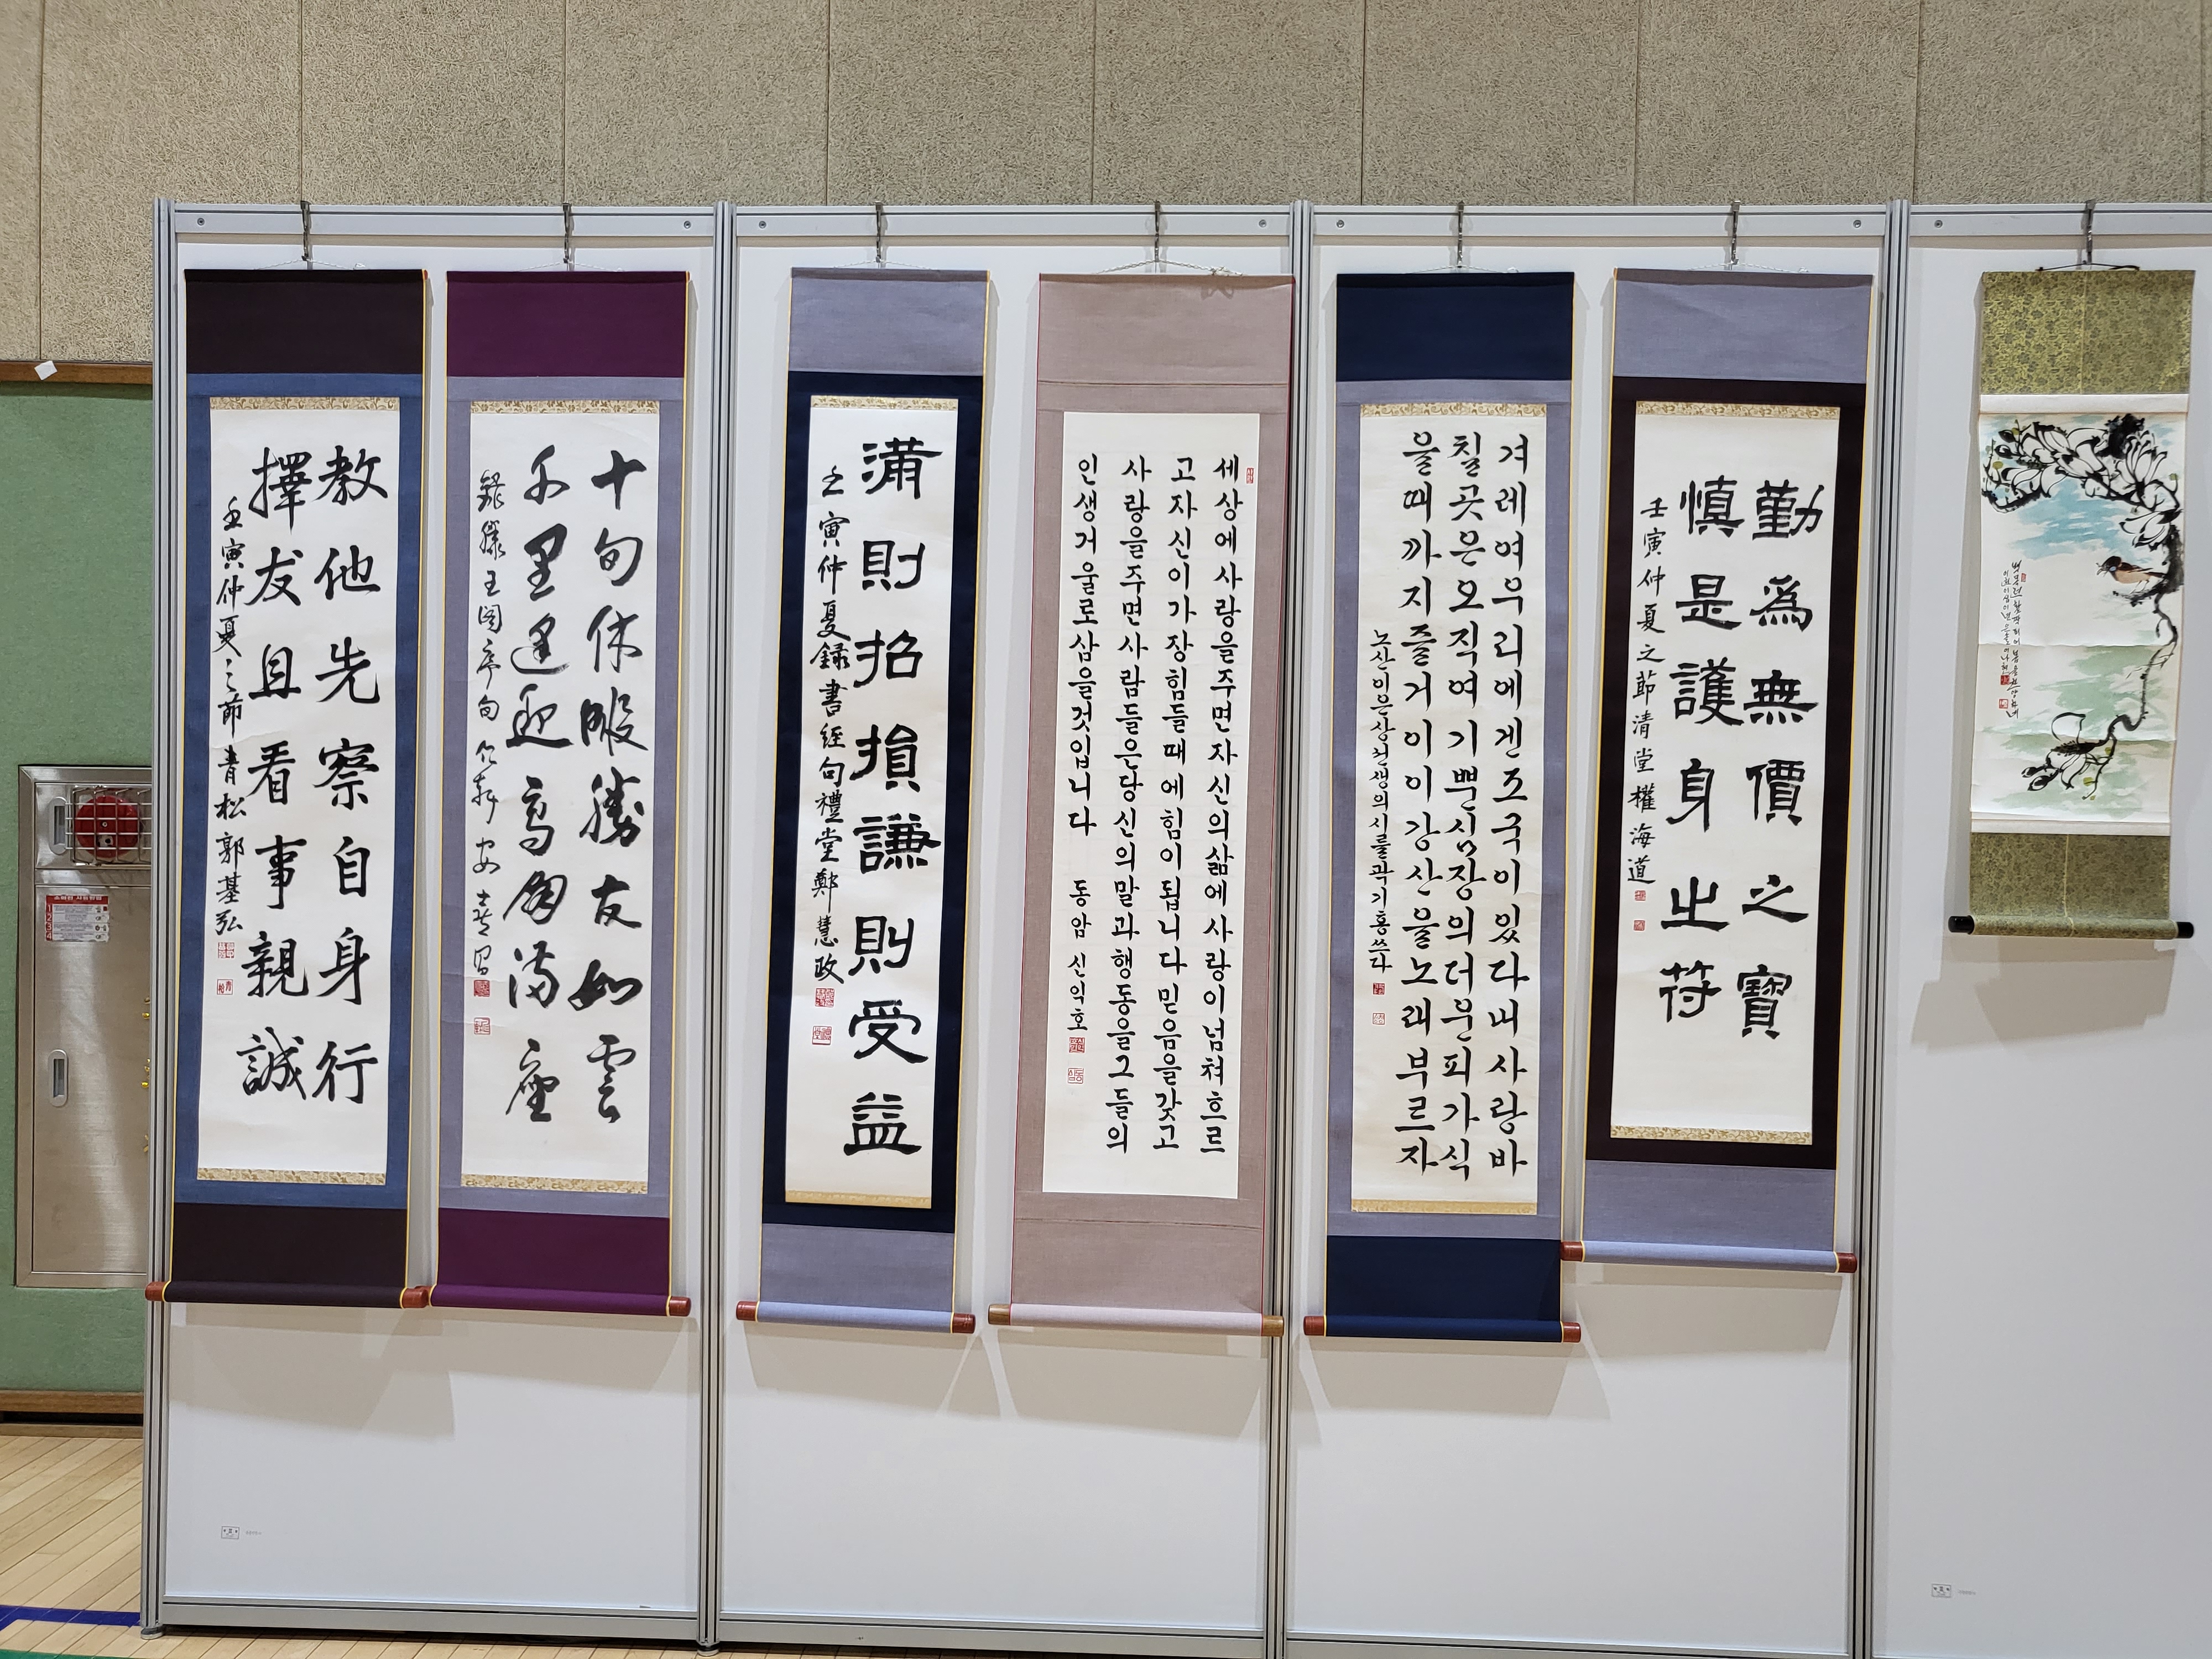 教他先察自身行
擇友且看事親誠
壬寅仲夏之節青松郭基弘
十旬休暇勝友如雲
千里逢迎高朋滿座
錄滕王閣序句
滿則招損謙則受益
壬寅仲夏録書経句禮堂鄭慧政
세상에사랑을주면자신의삶에사랑이넘쳐흐르
고자신이가장힘들때에힘이됩니다믿음을갖고
사랑을주면사람들은당신의말과행동을그들의
인생거울로삼을것입니다 동암 신익호
겨레여우리에겐조국이있다내사랑바
칠곳은오직여기뿐심장의더운피가식
을때까지즐거이이강산을노래부르자
노산이은상선생의시를곽기홍쓰다
勤爲無價之寶
愼是護身之符
壬寅仲夏之節清堂權海道